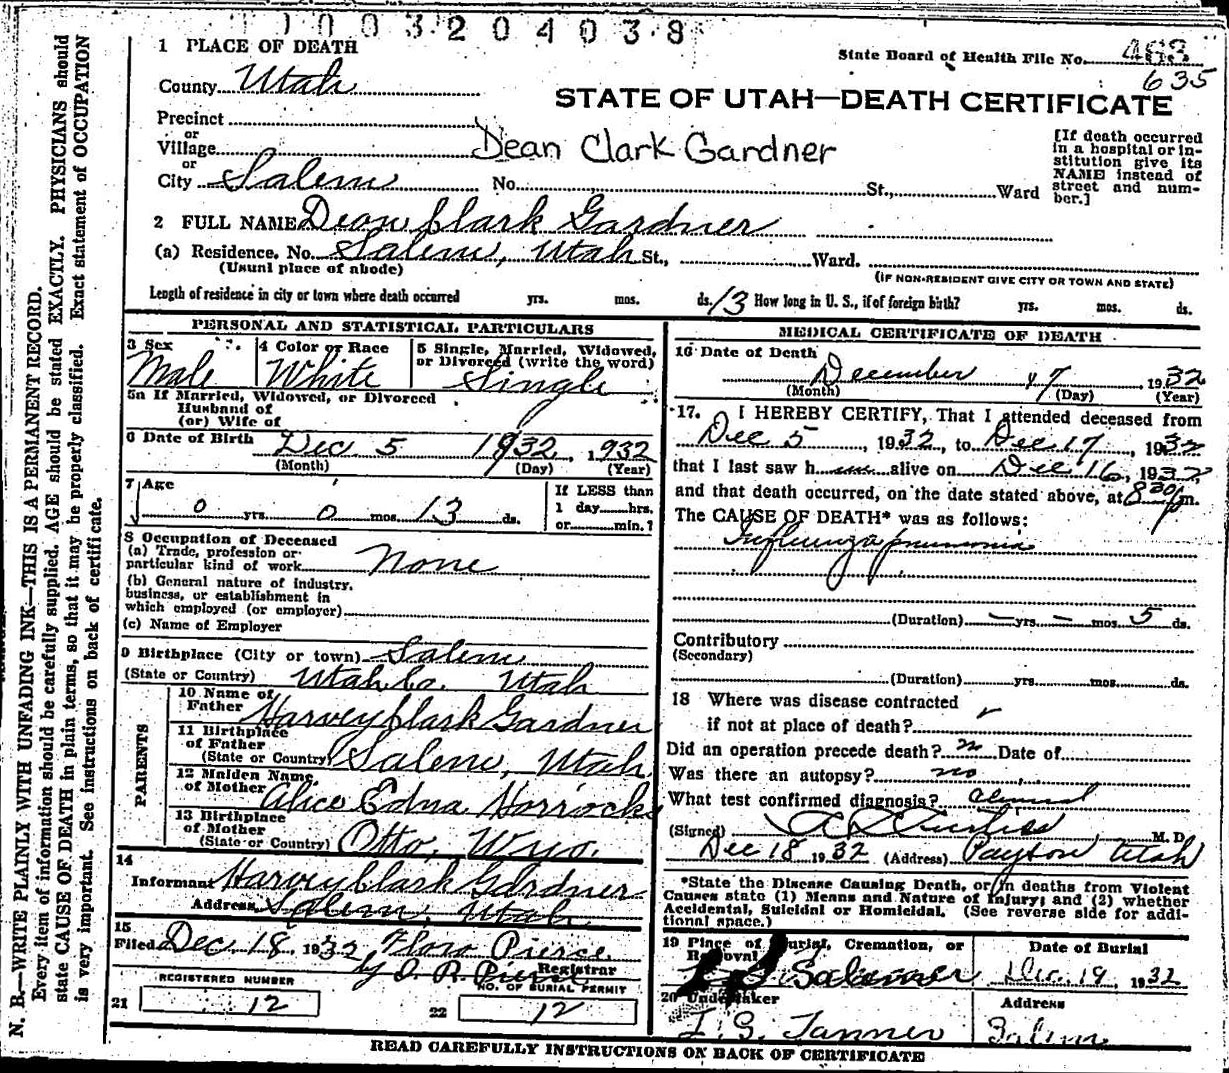 1003204038
1 PLACE OF DEATH
State Board of Health File No. 483
635
County Utah
STATE OF UTAH—DEATH CERTIFICATE
Precinct
or
Village
Dean Clark Gardner
[If death occurred in a hospital or in-stitution give its NAME instead of street and num-ber.]
or
City Salem No. St., Ward
2 FULL NAME Dean Clark Gardner
(a) Residence. No. Salem, Utah St., Ward.
(Usual place of abode) (IF NON-RESIDENT GIVE CITY OR TOWN AND STATE)
Length of residence in city or town where death occurred yrs. mos. ds. 13 How long in U. S., if of foreign birth? yrs. mos. ds.
PERSONAL AND STATISTICAL PARTICULARS
3 Sex Male
4 Color or Race White
5 Single, Married, Widowed, or Divorced (write the word) Single
5a If Married, Widowed, or Divorced
Husband of
(or) Wife of
6 Date of Birth Dec 5 1932, 1932
(Month) (Day) (Year)
7 Age
0 yrs. 0 mos. 13 ds.
If LESS than
1 day hrs.
or min.?
8 Occupation of Deceased
(a) Trade, profession or
particular kind of work None
(b) General nature of industry,
business, or establishment in
which employed (or employer)
(c) Name of Employer
9 Birthplace (City or town) Salem
(State or Country) Utah Co. Utah
PARENTS
10 Name of Father Harvey Clark Gardner
11 Birthplace of Father
(State or Country) Salem, Utah
12 Maiden Name of Mother Alice Edna Horrocks
13 Birthplace of Mother
(State or Country) Otto, Wyo.
14
Informant Harvey Clark Gardner
Address Salem, Utah
15
Filed Dec 18 1932 Flora Pierce
by D. R. Pierce Registrar
REGISTERED NUMBER
21 12
NO. OF BURIAL PERMIT
22 12
MEDICAL CERTIFICATE OF DEATH
16 Date of Death
December 17, 1932
(Month) (Day) (Year)
17. I HEREBY CERTIFY, That I attended deceased from
Dec 5, 1932, to Dec 17, 1932
that I last saw h im alive on Dec 16, 1932
and that death occurred, on the date stated above, at 8 30 p m.
The CAUSE OF DEATH* was as follows:
Influenza pneumonia
(Duration) — yrs. — mos. 5 ds.
Contributory
(Secondary)
(Duration) yrs. mos. ds.
18 Where was disease contracted
if not at place of death?
Did an operation precede death? no Date of
Was there an autopsy? no
What test confirmed diagnosis? clinical
(Signed) A L Curtiss, M. D.
Dec 18 1932 (Address) Payson Utah
*State the Disease Causing Death, or in deaths from Violent
Causes state (1) Means and Nature of Injury; and (2) whether
Accidental, Suicidal or Homicidal. (See reverse side for addi-
tional space.)
19 Place of Burial, Cremation, or Removal
Salem
Date of Burial
Dec. 19 1932
20 Undertaker
I. G. Tanner
Address
Salem
READ CAREFULLY INSTRUCTIONS ON BACK OF CERTIFICATE
N. B.—WRITE PLAINLY WITH UNFADING INK—THIS IS A PERMANENT RECORD.
Every item of information should be carefully supplied. AGE should be stated EXACTLY. PHYSICIANS should
state CAUSE OF DEATH in plain terms, so that it may be properly classified. Exact statement of OCCUPATION
is very important. See instructions on back of certificate.